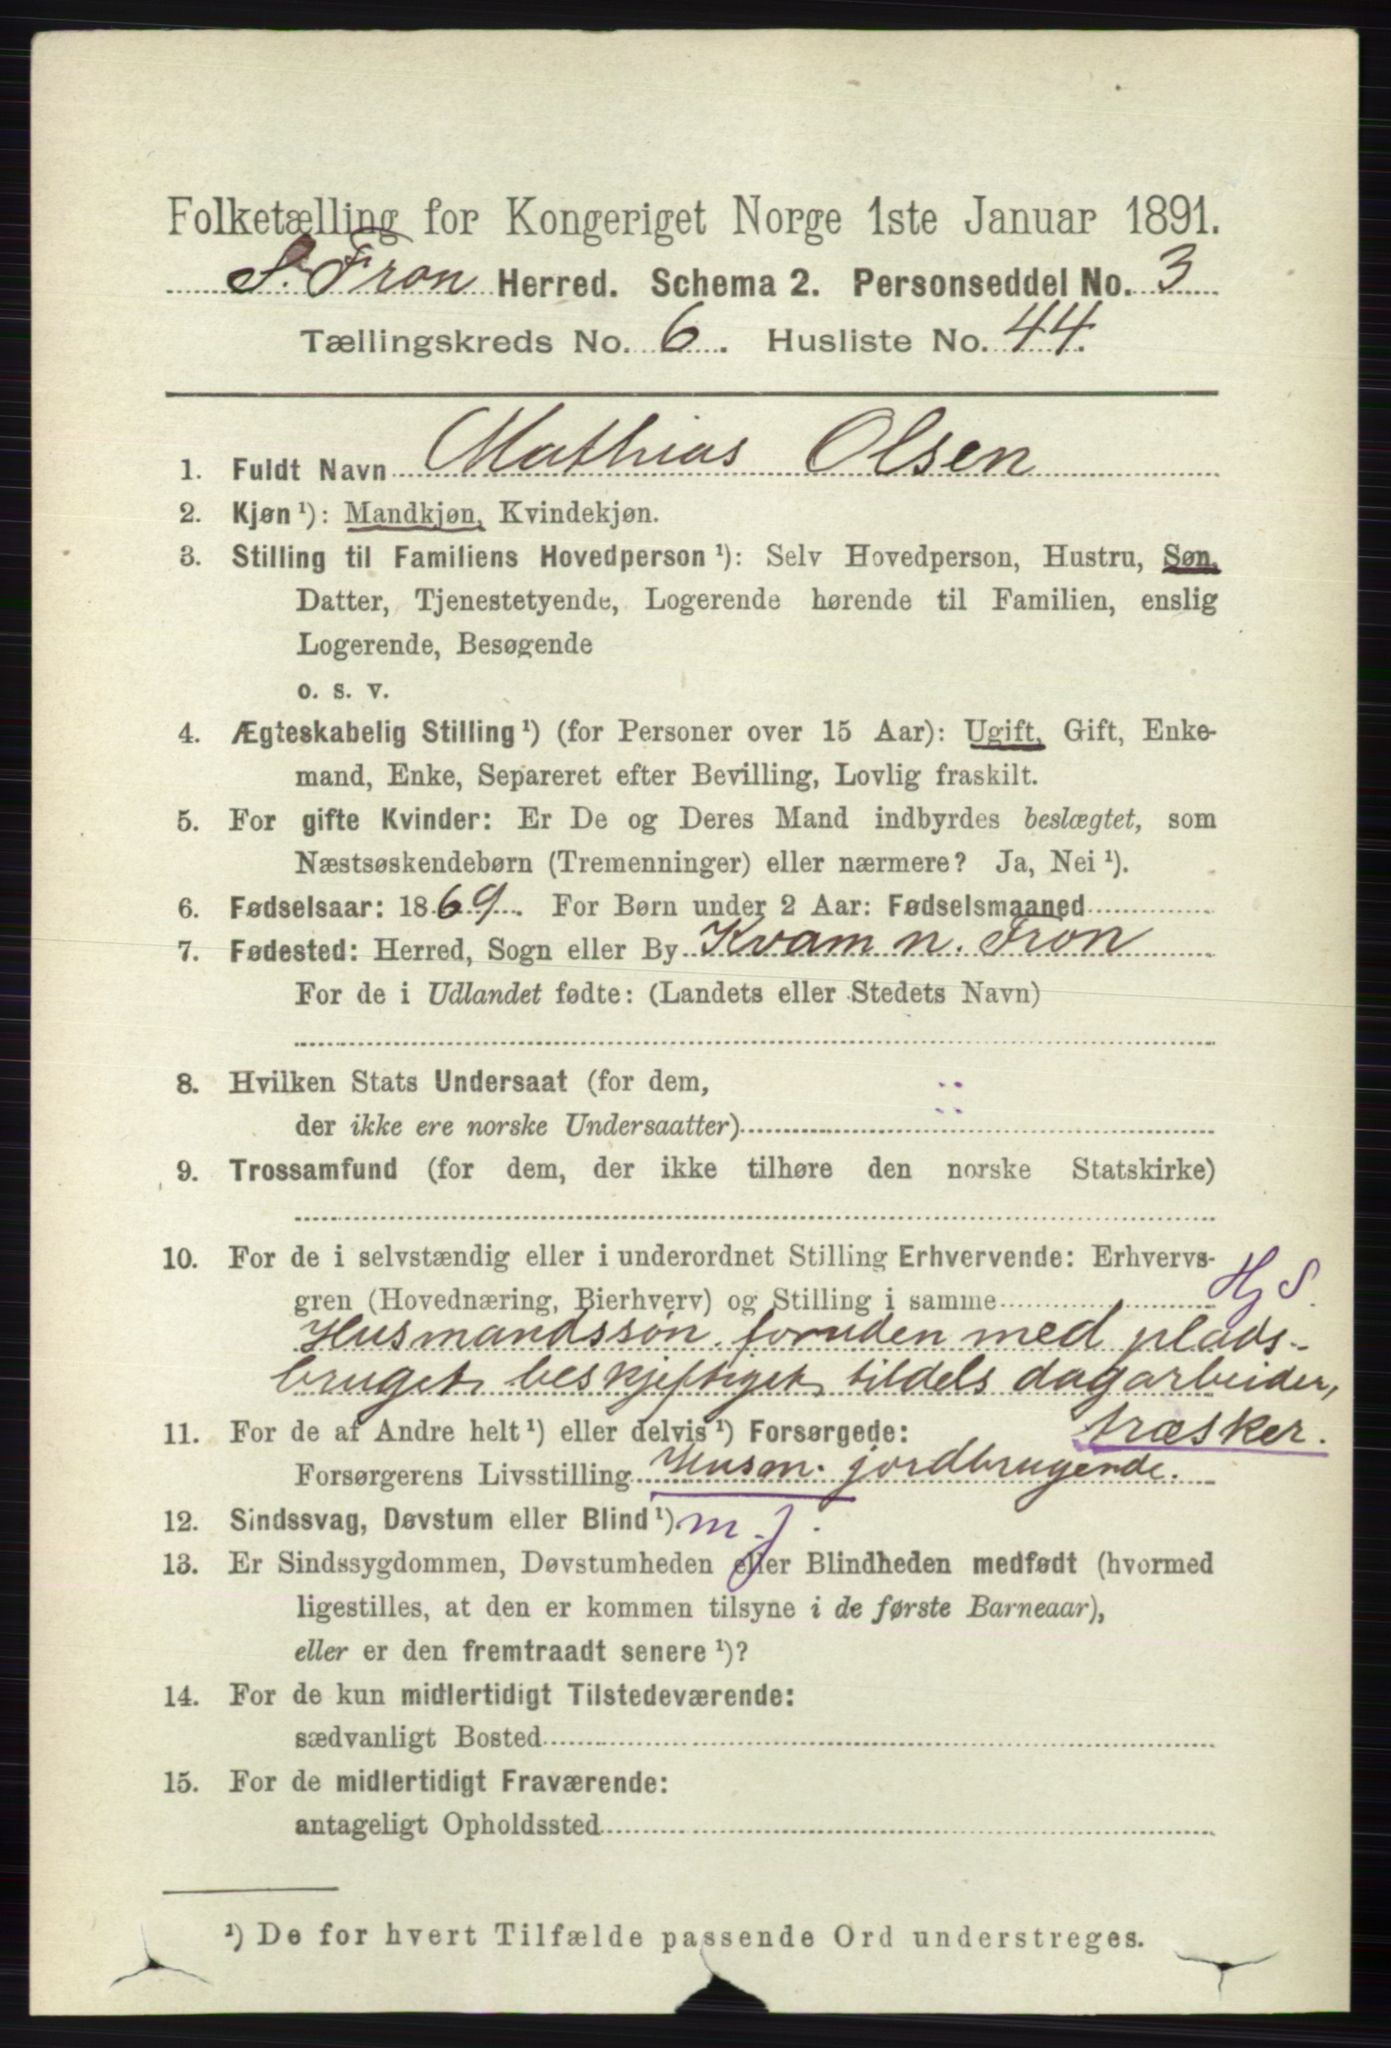 Folketælling for Kongeriget Norge 1ste Januar 1891.
S. Fron Herred. Schema 2. Personseddel No. 3
Tællingskreds No. 6. Husliste No. 44.
1. Fuldt Navn Mathias Olsen
2. Kjøn ¹): Mandkjøn, Kvindekjøn.
3. Stilling til Familiens Hovedperson ¹): Selv Hovedperson, Hustru, Søn,
Datter, Tjenestetyende, Logerende hørende til Familien, enslig
Logerende, Besøgende
o. s. v.
4. Ægteskabelig Stilling ¹) (for Personer over 15 Aar): Ugift, Gift, Enke-
mand, Enke, Separeret efter Bevilling, Lovlig fraskilt.
5. For gifte Kvinder: Er De og Deres Mand indbyrdes beslægtet, som
Næstsøskendebørn (Tremenninger) eller nærmere? Ja, Nei ¹).
6. Fødselsaar: 1869. For Børn under 2 Aar: Fødselsmaaned
7. Fødested: Herred, Sogn eller By Kvam n. Fron
For de i Udlandet fødte: (Landets eller Stedets Navn)
8. Hvilken Stats Undersaat (for dem,
der ikke ere norske Undersaatter)
9. Trossamfund (for dem, der ikke tilhøre den norske Statskirke)
10. For de i selvstændig eller i underordnet Stilling Erhvervende: Erhvervs-
gren (Hovednæring, Bierhverv) og Stilling i samme Hj S.
Husmandssøn. foruden med plads-
bruget beskjeftiget tildels dagarbeider,
træsker.
11. For de af Andre helt ¹) eller delvis ¹) Forsørgede:
Forsørgerens Livsstilling Husm. jordbrugende.
12. Sindssvag, Døvstum eller Blind ¹) m. j.
13. Er Sindssygdommen, Døvstumheden eller Blindheden medfødt (hvormed
ligestilles, at den er kommen tilsyne i de første Barneaar),
eller er den fremtraadt senere ¹)?
14. For de kun midlertidigt Tilstedeværende:
sædvanligt Bosted
15. For de midlertidigt Fraværende:
antageligt Opholdssted
¹) De for hvert Tilfælde passende Ord understreges.